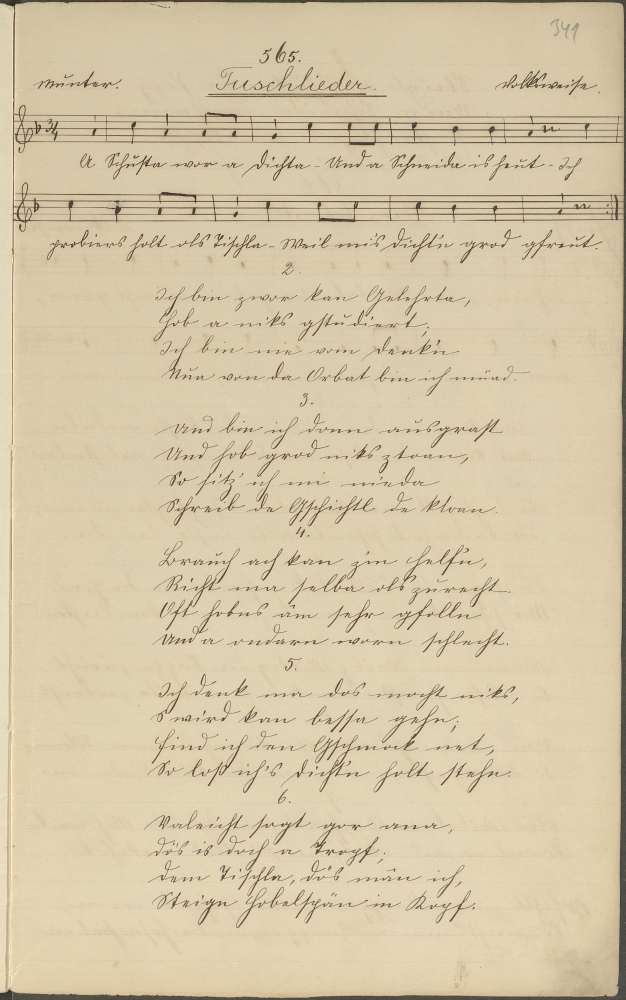 341
565.
munter. Tuschlieder. Volksweise.
3/4
A Schusta wor a Dichta - Und a Schneida is heut - Ich
probiers holt ols Tischla - Weil mi's Dicht'n grod gfreut.
2.
Ich bin zwor kan Gelehrta,
Hob a niks gstudiert;
Ich bin nie vom Denk'n
Nua von da Orbat bin ich müad.
3.
Und bin ich donn ausgrast
Und hob grod niks ztoan,
So sitz ich mi nieda
Schreib de Gschichtl de kloan.
4.
Brauch ach kan zin helfn,
Richt ma selba ols zurecht
Oft hobns am sehr gfolln
Und a ondarn worn schlecht.
5.
Ich denk ma dos mocht niks,
S wird kan bessa gehn;
Find ich den Gschmock net,
So loß ich's Dicht'n holt stehn.
6.
Valeicht sogt gor ana,
Dös is doch a Tropf;
Dem Tischla, dös män ich,
Steign Hobelspän in Kopf.